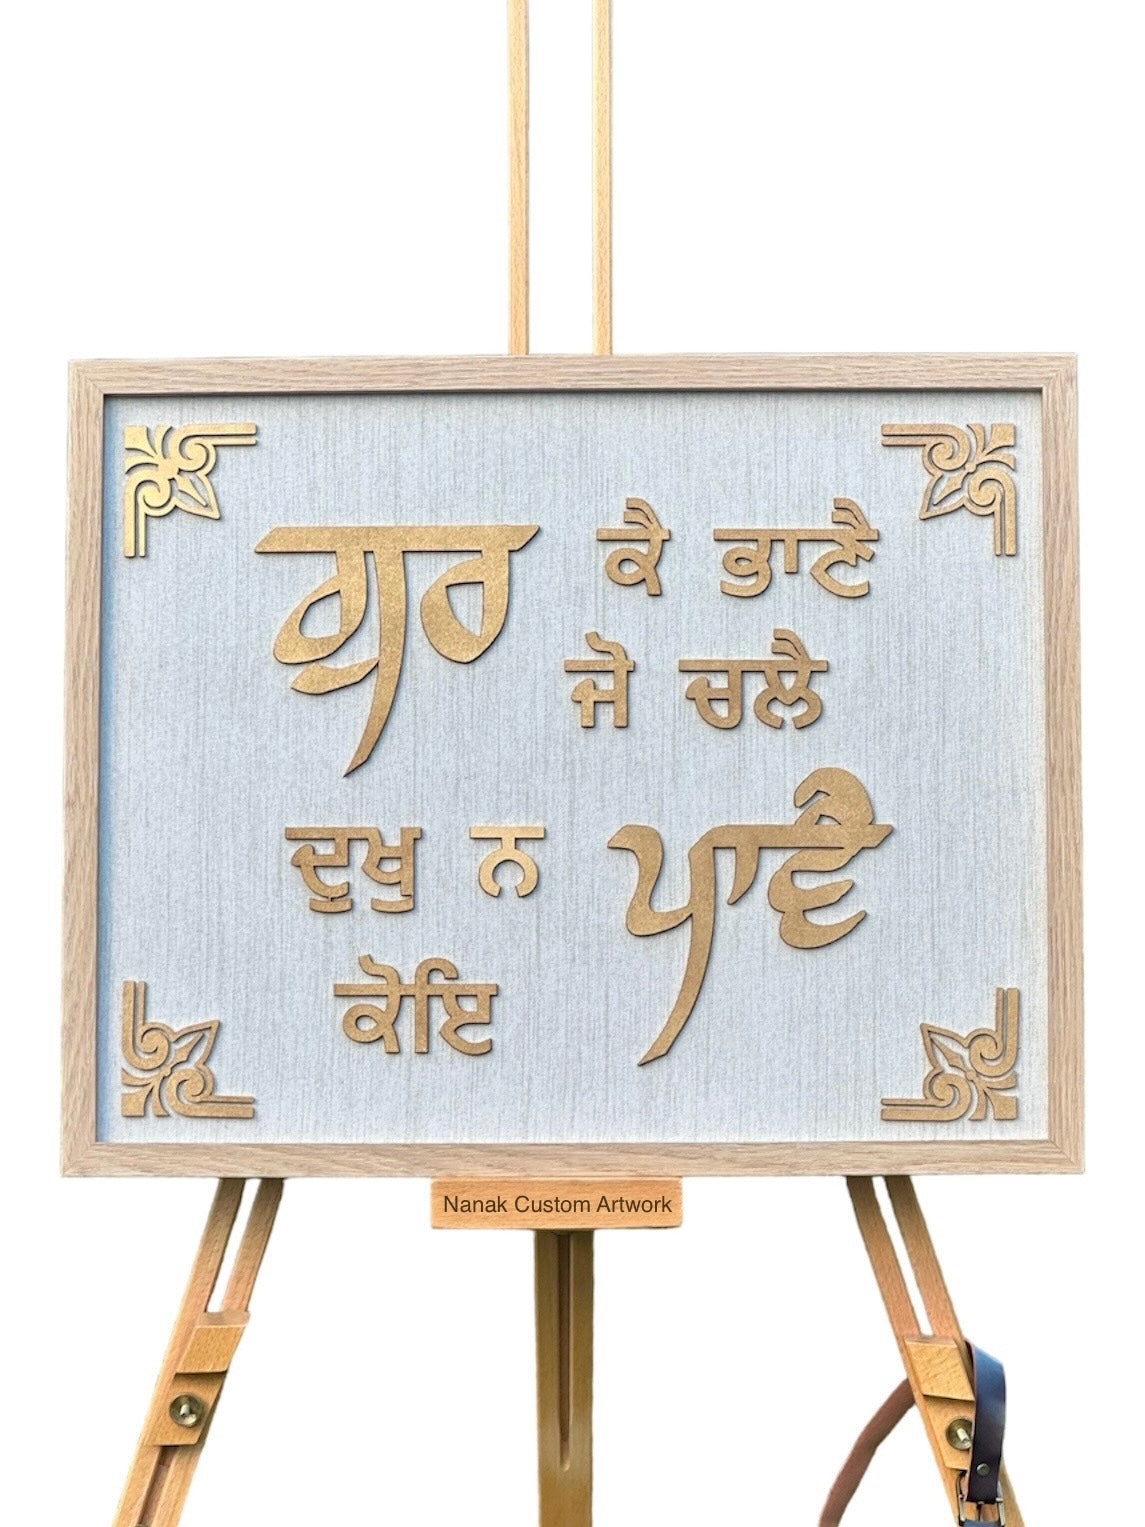 ਗੁਰ ਕੈ ਭਾਣੈ
ਜੋ ਚਲੈ
ਦੁਖੁ ਨ ਪਾਵੈ
ਕੋਇ
Nanak Custom Artwork